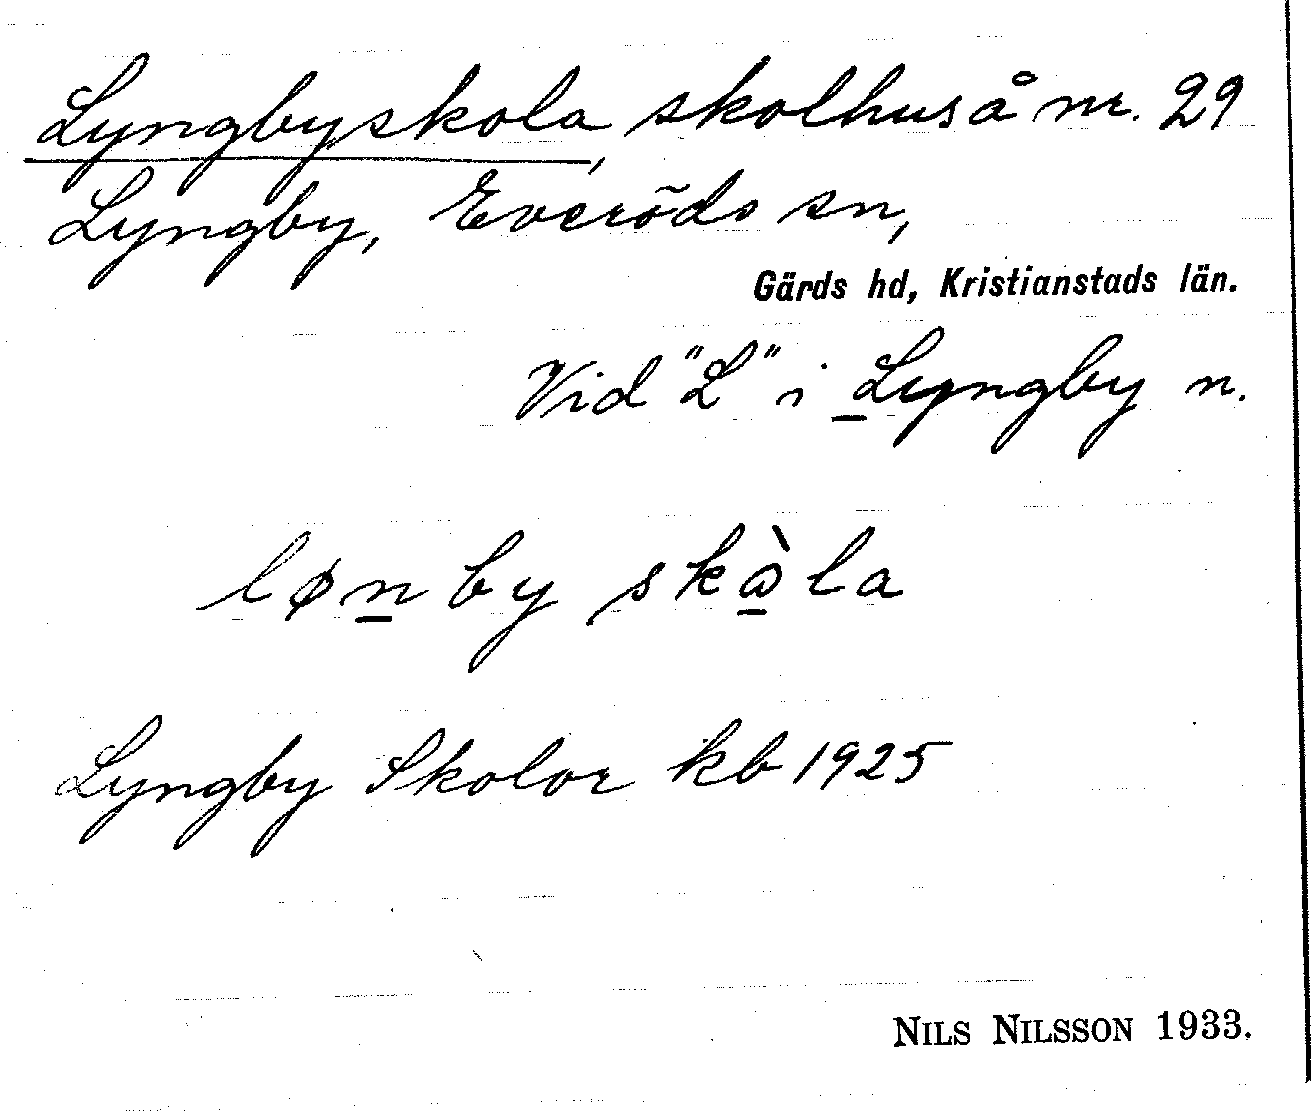 Lyngbyskola, skolhus å nr. 29
Lyngby, Everöds sn,
Gärds hd, Kristianstads län.
Vid "L" i Lyngby n.
løn̲by skὼ̲la
Lyngby Skolor kb 1925
NILS NILSSON 1933.